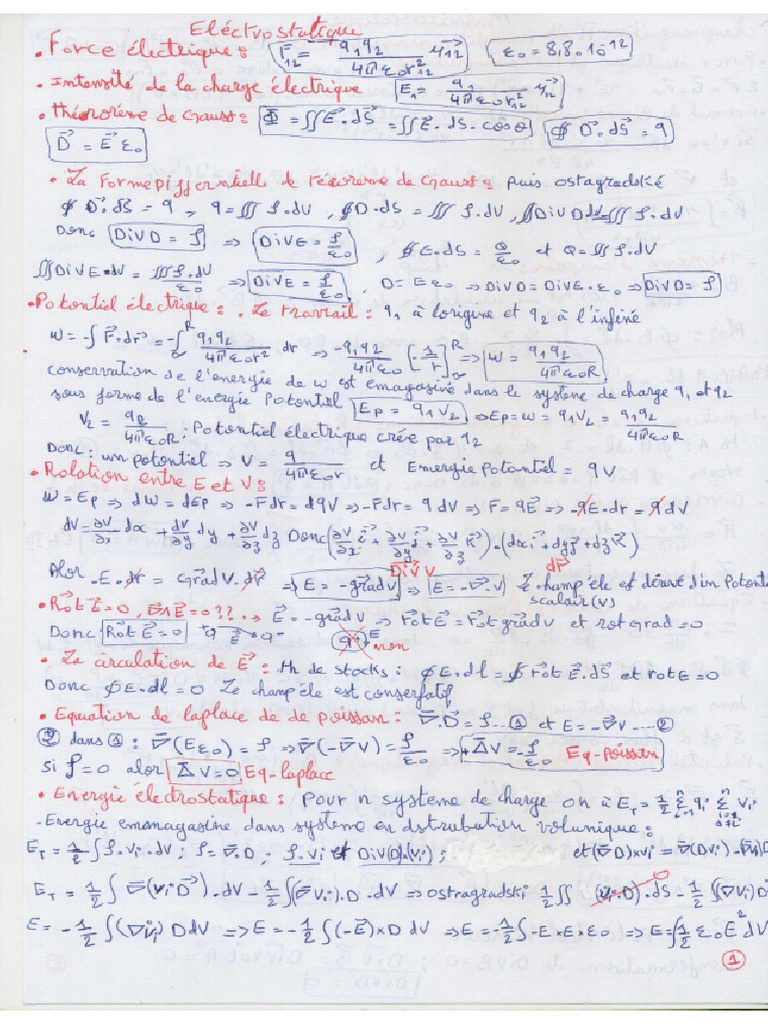 Eléctrostatique
• Force électrique : F₁₂ = q₁q₂ / 4πε₀r₁₂² u₁₂→   ε₀ = 8,8.10⁻¹²
• Intensité de la charge électrique E₁ = q₁ / 4πε₀r₁₂² u₁₂→
• théorème de Gauss : Φ = ∬E→.dS→ = ∬E.dS.cosθ   ∯D→.dS→ = q
D→ = E→ε₀
• La Forme Differntielle de téorème de Gauss : puis ostagradskié
∯D→.dS = q , q = ∭ρ.dV , ∯D.dS = ∭ρ.dV , ∭DivD dV = ∭ρ.dV
Donc DivD = ρ ⇒ DivE = ρ/ε₀ , ∯E.dS = Q/ε₀ et Q = ∭ρ.dV
∭DivE.dV = ∭ρ.dV/ε₀ ⇒ DivE = ρ/ε₀ , D = Eε₀ ⇒ DivD = DivE.ε₀ ⇒ DivD = ρ
• Potentiel électrique : . Le travail : q₁ à lorigine et q₂ à l'infinié
W = -∫F→.dr→ = -∫ q₁q₂/4πε₀r² dr ⇒ -q₁q₂/4πε₀ [-1/r]^R_∞ ⇒ W = q₁q₂/4πε₀R
conserration de l'energie de w est emagasivé dans le système de charge q₁ et q₂
sous forme de l'energie Potontiel Ep = q₁V₂ ⇒ Ep = w = q₁V₂ = q₁q₂/4πε₀R
V₂ = q₂/4πε₀R : Potontiel électrique crée par q₂
Donc : un potontiel ⇒ V = q/4πε₀r et Emergie Potantiel = qV
• Rolation entre E et V :
W = Ep ⇒ dW = dEp ⇒ -Fdr = dqV ⇒ -Fdr = q dV ⇒ F = qE→ ⇒ -qE.dr = q dV
dV = ∂V/∂x dx + ∂V/∂y dy + ∂V/∂z dz Donc (∂V/∂x i→ + ∂V/∂y j→ + ∂V/∂z k→).(dx i→ + dy j→ + dz k→)
Div V   dr→
Alor -E.dr = Grad V.dr→ ⇒ E = -grad→V ⇒ E = -∇.V L champ éle et dérivé d'un Potontiel
scalair (V)
• Rot E = 0, ∇∧E→ = 0 ?? . → E→ = -grad V ⇒ rot E = rot grad V et rot grad = 0
Donc Rot E→ = 0   q⁺ E→ q⁻   q⁺ E non
• La circulation de E→ : th de stocks : ∮E.dl = ∯rot E→.dS→ et rot E = 0
Donc ∮E.dl = 0 Le champ éle est conserfatif
• Equation de laplace de de poissan : ∇→.D→ = ρ ... ① et E = -∇V ... ②
② dans ① : ∇→(Eε₀) = ρ ⇒ ∇→(-∇→V) = ρ/ε₀ ⇒ Δ→V = -ρ/ε₀ Eq-poissan
si ρ = 0 alor ΔV = 0 Eq-laplace
• Energie électrostatique : pour n systeme de charge on à E_T = 1/2 Σ qᵢ Σ Vᵢ
- Energie emmagasine dans système en dstrubation volumique :
E_T = 1/2 ∫ρ.Vᵢ.dV ; ρ = ∇.D ; ρ.Vᵢ = Div(D).Vᵢ ; et (∇D)×Vᵢ = ∇(DVᵢ) - D(∇Vᵢ)
E_T = 1/2 ∫∇→(Vᵢ D→).dV - 1/2 ∫(∇Vᵢ).D.dV ⇒ ostragradski 1/2 ∬(Vᵢ.D).dS - 1/2 ∫(∇Vᵢ)D
E = -1/2 ∫(∇Vᵢ) D dV ⇒ E = -1/2 ∫(-E→)×D dV ⇒ E = -1/2 ∫-E×E×ε₀ ⇒ E = ∫1/2 ε₀E² dV
1